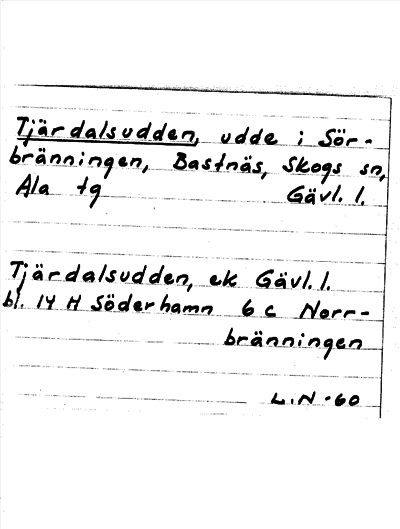 Tjärdalsudden, udde i Sör-
bränningen, Bastnäs, Skogs sn,
Ala tg Gävl. l.
Tjärdalsudden, ek Gävl. l.
bl. 14 H Söderhamn 6 c Norr-
bränningen
L.N -60